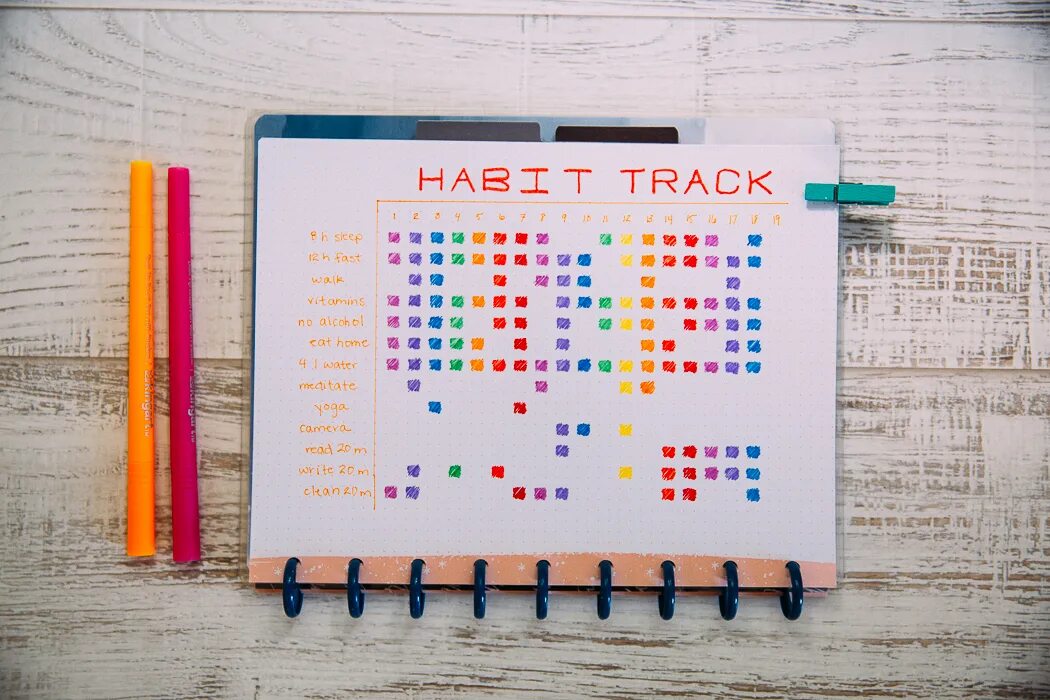 HABIT TRACK
1 2 3 4 5 6 7 8 9 10 11 12 13 14 15 16 17 18 19
8 h sleep
12 h fast
walk
vitamins
no alcohol
eat home
4 l water
meditate
yoga
camera
read 20 m
write 20 m
clean 20m